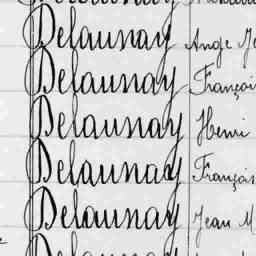 Delaunay Ange
Delaunay François
Delaunay Henri
Delaunay François
Delaunay Jean M
Delaunay